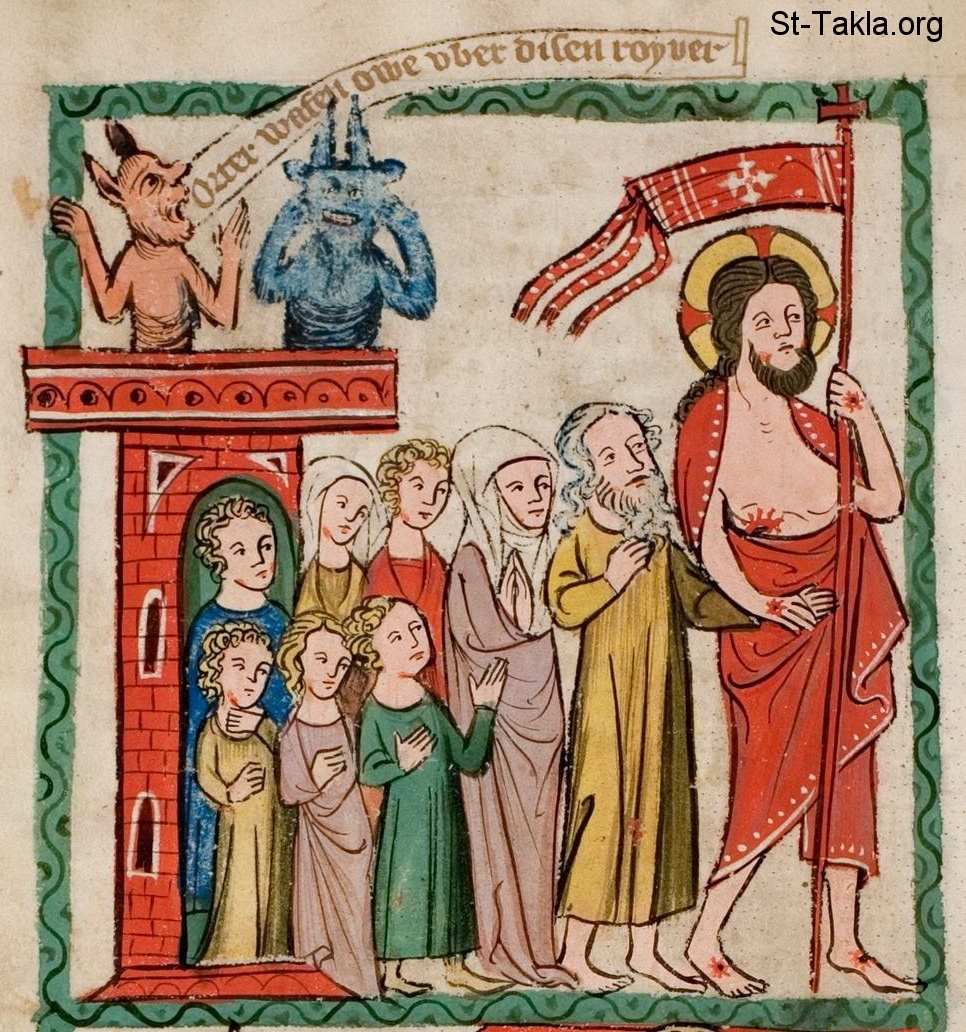 St-Takla.org
Otter wafen owe vber disen royver